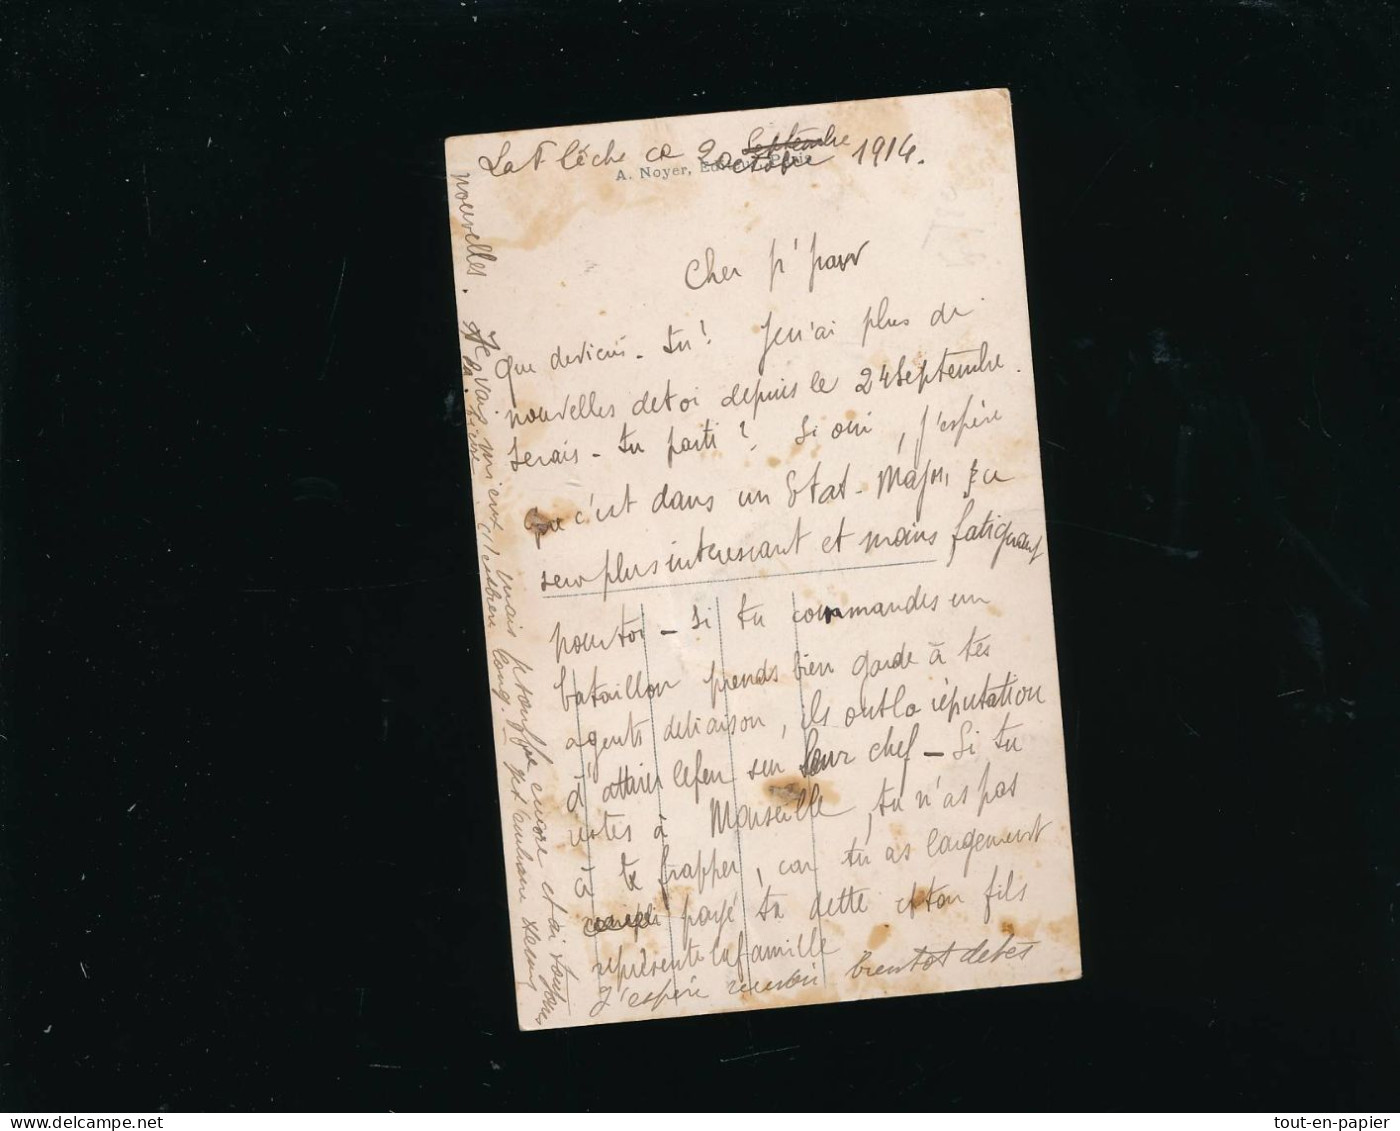 La Flêche ce 2 Septembre
octobre 1914.
A. Noyer, Editeur, Paris
Cher p'
Que deviens-tu? Je n'ai plus de
nouvelles de toi depuis le 24 Septembre.
Serais-tu parti? Si oui, j'espère
que c'est dans un Etat-Major, ce
sera plus interessant et moins fatiguant
pour toi - Si tu commandes un
bataillon prends bien garde à tes
agents de liaison, ils ont la réputation
d'attirer le feu sur leur chef - Si tu
restes à Marseille, tu n'as pas
à te frapper, car tu as largement
payé ta dette et ton fils
représente la famille
J'espère recevoir bientot de tes
nouvelles. Je vais mieux, mais encore et ai toujours
la fièvre C'est bien long.
tout-en-papier